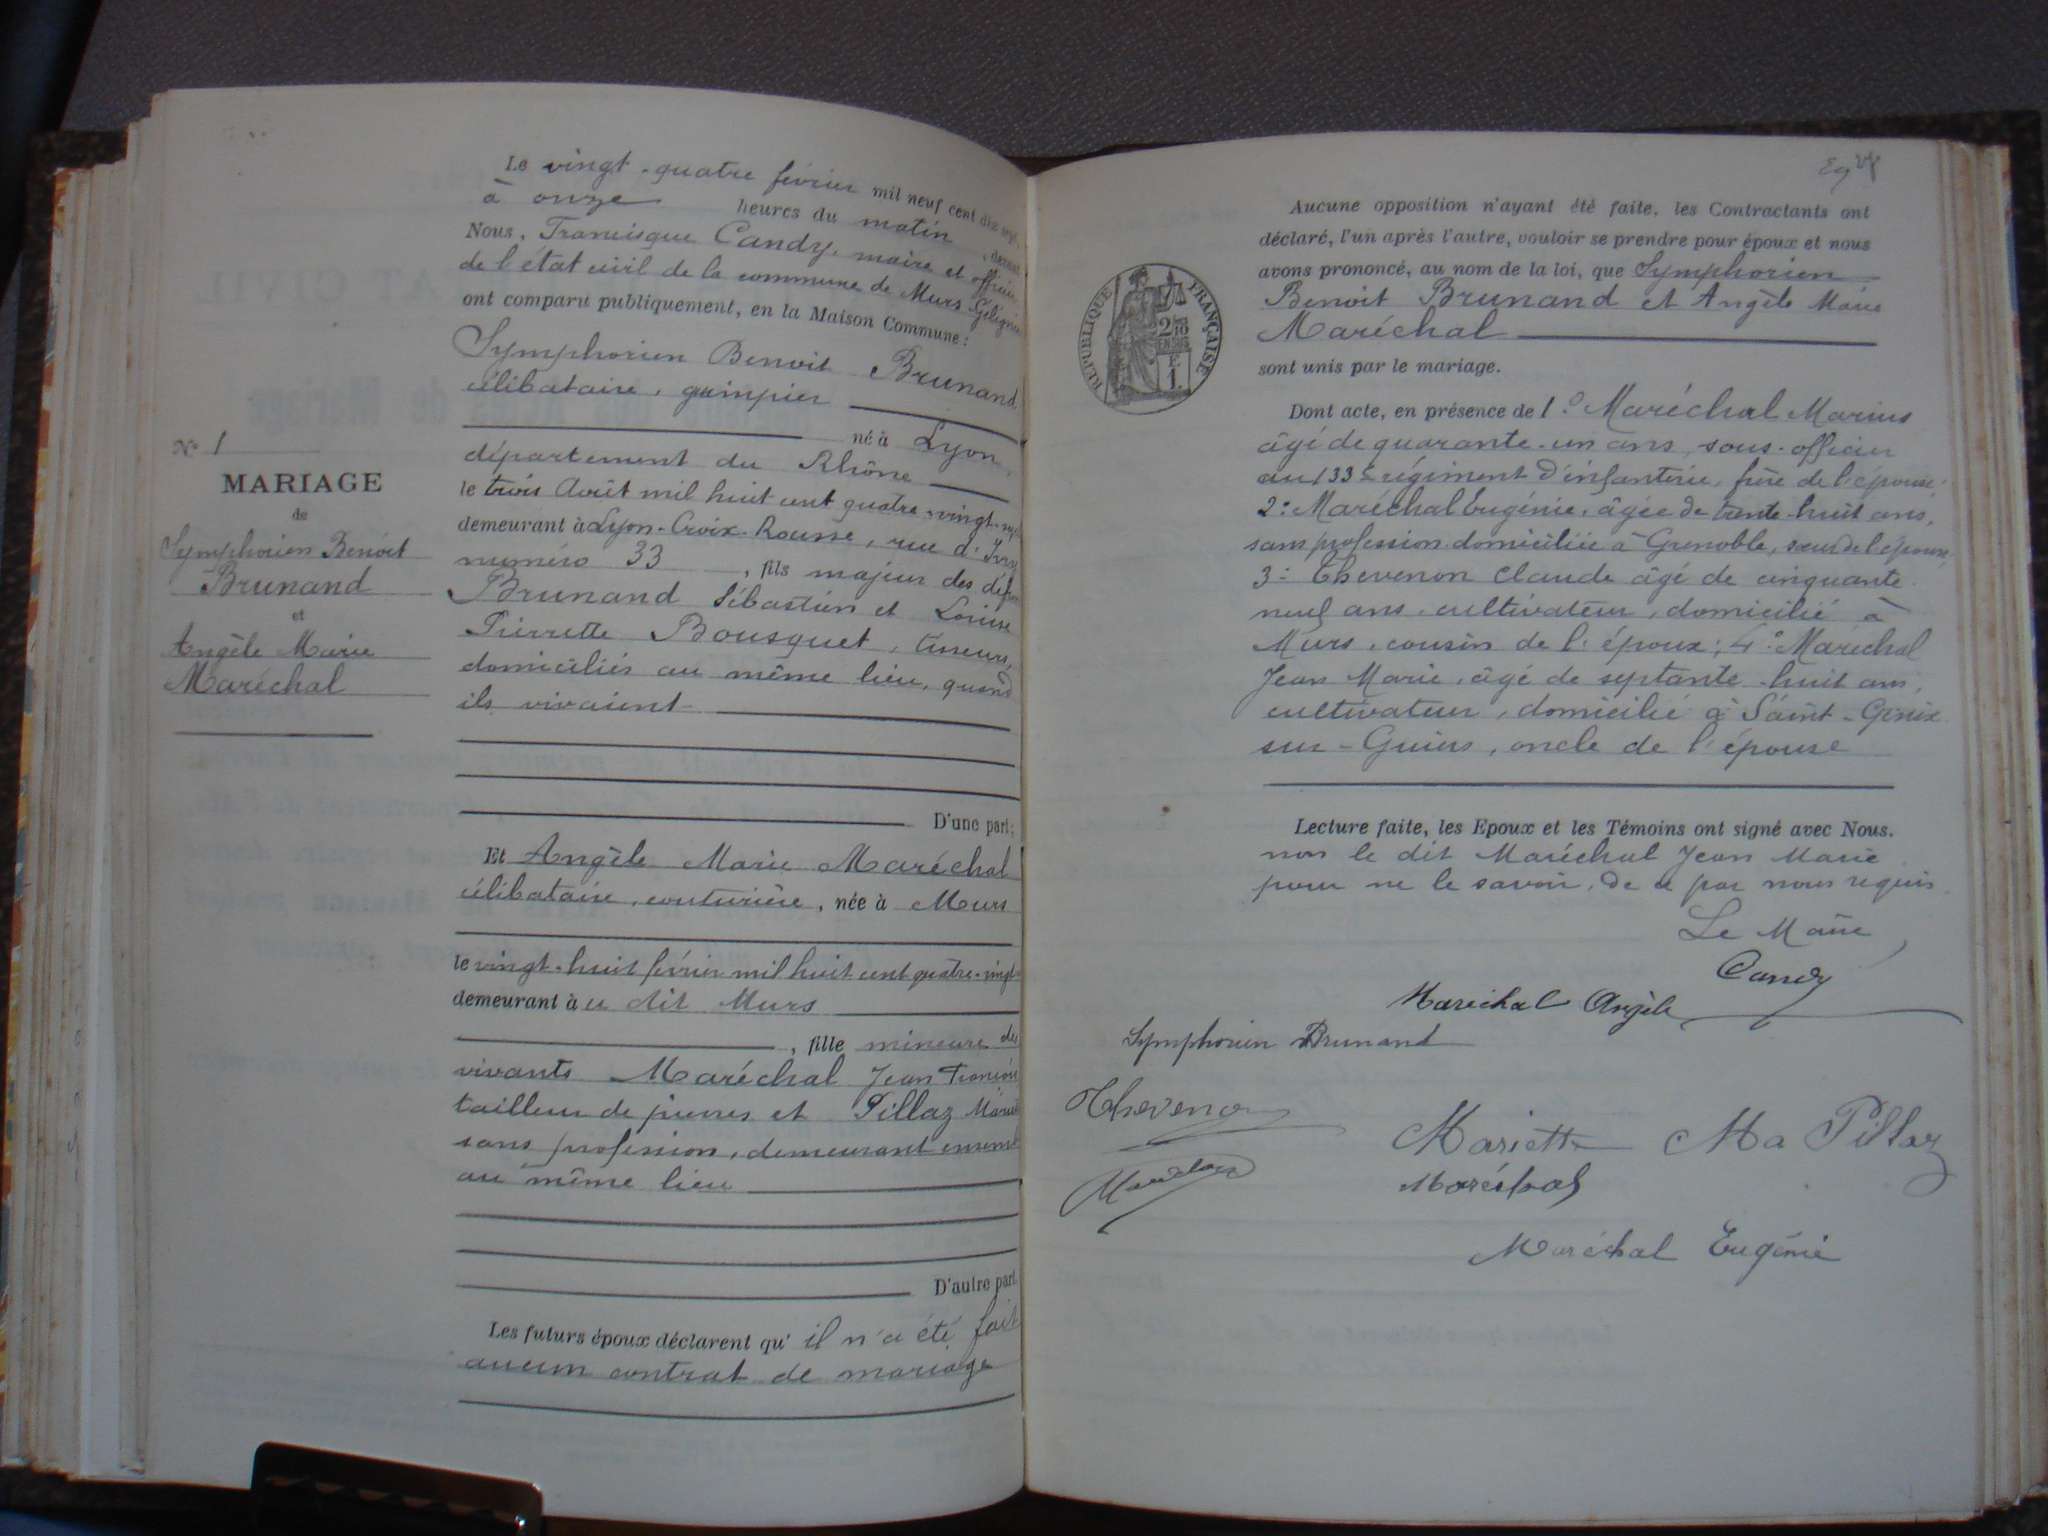 Le vingt-quatre février mil neuf cent dix sept,
à onze heures du matin, devant
Nous, Francisque Candy, maire et officier
de l'état civil de la commune de Murs Gélignieux
ont comparu publiquement, en la Maison Commune :
Symphorien Benoit Brunand
célibataire, guimpier
né à Lyon,
département du Rhône
le trois Août mil huit cent quatre-vingt-
demeurant à Lyon-Croix-Rousse, rue d'Ivry
numéro 33, fils majeur des
Brunand Sébastien et Louise
Pierrette Bousquet, tisseurs,
domiciliés au même lieu, quand
ils vivaient
D'une part;
Nº 1
MARIAGE
de
Symphorien Benoit
Brunand
et
Angèle Marie
Maréchal
Et Angèle Marie Maréchal
célibataire, couturière, née à Murs
le vingt-huit février mil huit cent quatre-vingt-
demeurant à ce dit Murs
, fille mineure des
vivants Maréchal Jean François
tailleur de pierres et Pillaz Marie
sans profession, demeurant ensemble
au même lieu
D'autre part.
Les futurs époux déclarent qu'il n'a été fait
aucun contrat de mariage
Aucune opposition n'ayant été faite, les Contractants ont
déclaré, l'un après l'autre, vouloir se prendre pour époux et nous
avons prononcé, au nom de la loi, que Symphorien
Benoit Brunand et Angèle Marie
Maréchal
sont unis par le mariage.
RÉPUBLIQUE FRANÇAISE
2/10
EN SUS
F.
1.
Dont acte, en présence de 1º Maréchal Marius
âgé de quarante-un ans, sous-officier
au 133e régiment d'infanterie, frère de l'épouse;
2º Maréchal Eugénie, âgée de trente-huit ans,
sans profession domiciliée à Grenoble, sœur de l'épouse,
3º Thevenon Claude âgé de cinquante
neuf ans, cultivateur, domicilié à
Murs, cousin de l'époux; 4º Maréchal
Jean Marie, âgé de septante-huit ans,
cultivateur, domicilié à Saint-Genix
sur-Guiers, oncle de l'épouse
Lecture faite, les Epoux et les Témoins ont signé avec Nous.
non le dit Maréchal Jean Marie
pour ne le savoir, de ce par nous requis
Le Maire
Candy
Maréchal Angèle
Symphorien Brunand
Thevenon
Mariette Ma Pillaz
Maréchal
Maréchal
Maréchal Eugénie